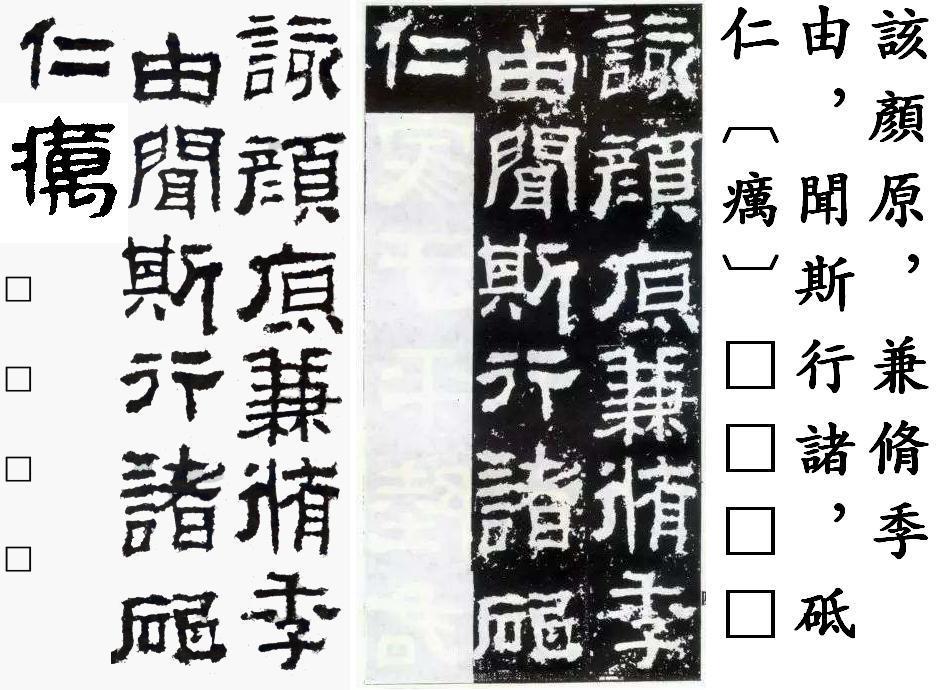 該顏原，兼脩季
由，聞斯行諸，砥
仁〔癘〕□□□□
該顏原兼脩季
由聞斯行諸砥
仁
該顏原兼脩季
由聞斯行諸砥
仁癘□□□□